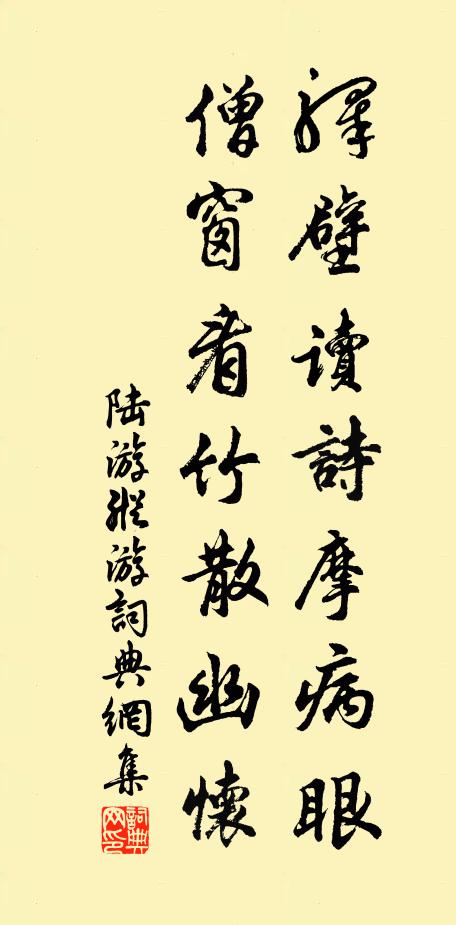 驛壁讀詩摩病眼
僧窗看竹散幽懷
陸游縱游詞典網集
詞典網印